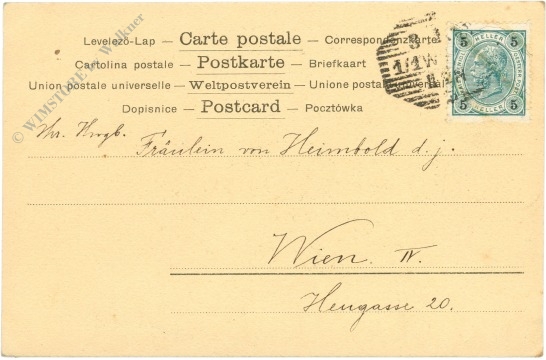 Levelező-Lap — Carte postale — Correspondenzkarte
Cartolina postale — Postkarte — Briefkaart
Union postale universelle — Weltpostverein — Unione postale universale
Dopisnice — Postcard — Pocztówka
5 HELLER 5
5 HELLER 5
3
1/1 W
© WIMSTORE by Walkner
Fräulein von Heimbold d. j.
Wien. IV.
Heugasse 20.